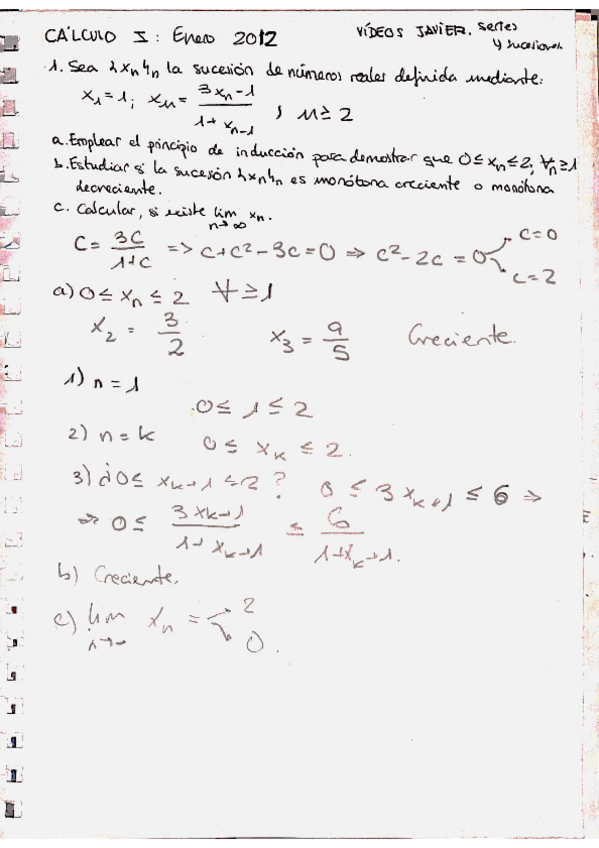 CÁLCULO I: Enero 2012
VÍDEOS JAVIER. Series y sucesiones
1. Sea {xn}n la sucesión de números reales definida mediante:
x1 = 1; xn = (3xn-1)/(1+xn-1) ; n ≥ 2
a. Emplear el principio de inducción para demostrar que 0 ≤ xn ≤ 2, ∀n ≥ 1
b. Estudiar si la sucesión {xn}n es monótona creciente o monótona
decreciente.
c. Calcular, si existe lim n→∞ xn.
C = 3C/(1+C) => C+C²-3C=0 => C²-2C = 0 C=0 C=2
a) 0 ≤ xn ≤ 2 ∀ ≥ 1
x2 = 3/2 x3 = 9/5 Creciente.
1) n = 1
0 ≤ 1 ≤ 2
2) n = k 0 ≤ xk ≤ 2.
3) ¿0 ≤ xk+1 ≤ 2? 0 ≤ 3xk+1 ≤ 6 =>
=> 0 ≤ (3xk+1)/(1+xk+1) ≤ 6/(1+xk+1).
b) Creciente.
c) lim n→∞ xn = 2 0.